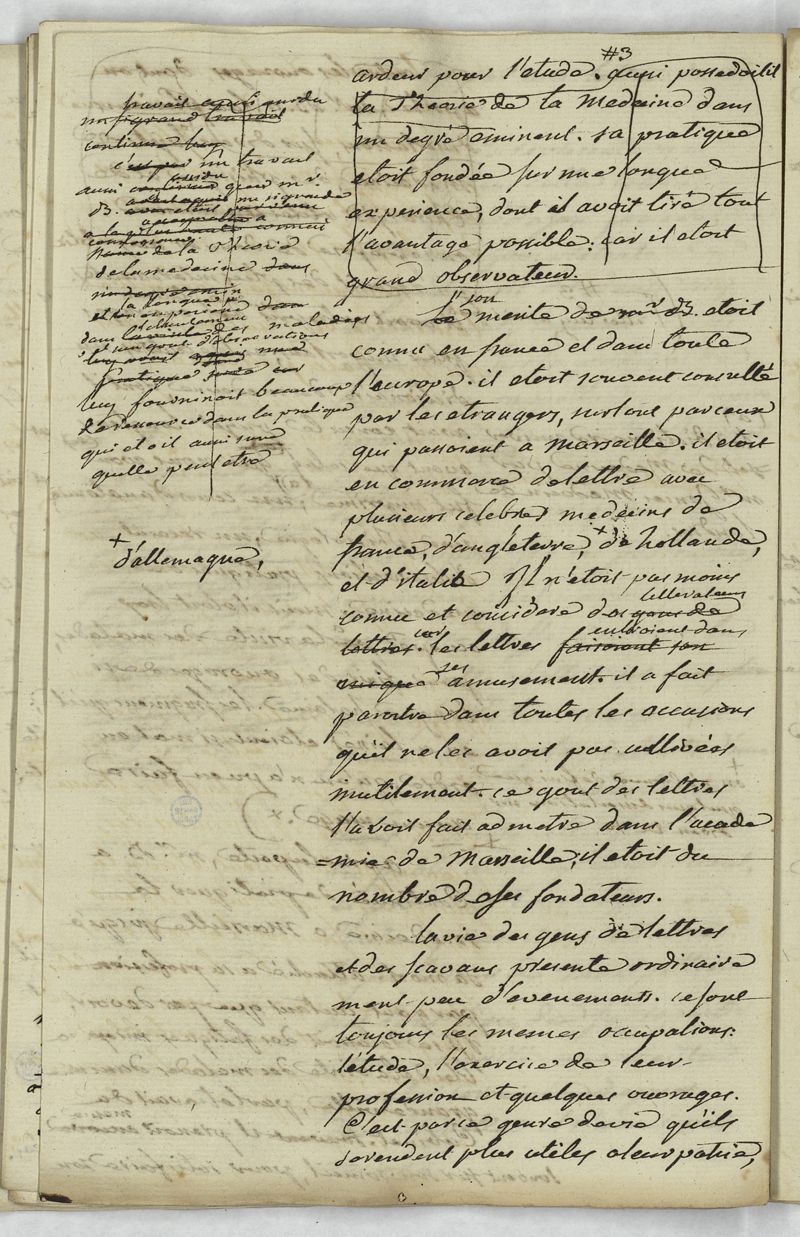 #3
ardeur pour l'etude. aussi possedoit il
la Theorie de la medecine dans
un degré eminent. sa pratique
etoit fondée sur une longue
experience, dont il avoit tiré tout
l'avantage possible: car il etoit
grand observateur.
son
Le merite de mr. B. etoit
connu en france et dans toute
l'europe. il etoit souvent consulté
par les etrangers, surtout par ceux
qui passoient a marseille. il etoit
en commerce de lettre avec
plusieurs celebres medecins de
france, d'angleterre, + de hollande,
et d'italie Il n'etoit pas moins
connu et consideré des gens de
litterateurs
lettres. car les lettres faisoient son
entroient dans
unique ses amusement. il a fait
paroitre dans toutes les occasions
qu'il ne les avoit pas cultivées
inutilement. ce gout des lettres
l'avoit fait admetre dans l'acade
=mie de Marseille, il etoit du
nombre de ses fondateurs.
la vie des gens de lettres
et des scavans presente ordinaire
ment peu d'evenements. ce sont
toujours les mesmes occupations:
l'etude, l'exercice de leur
profession et quelques ouvrages.
C'est par ce genre de vie qu'ils
se rendent plus utiles a leur patrie,
un si grand travail
continu
c'est par un travail
assidu
aussi continu que mr.
B.
de la medecine dans
dans des maladies
d'observations
pratique
luy fournissoit beaucoup
de ressource dans la pratique
qui etoit aussi sure
quelle peut etre
+
d'allemagne,